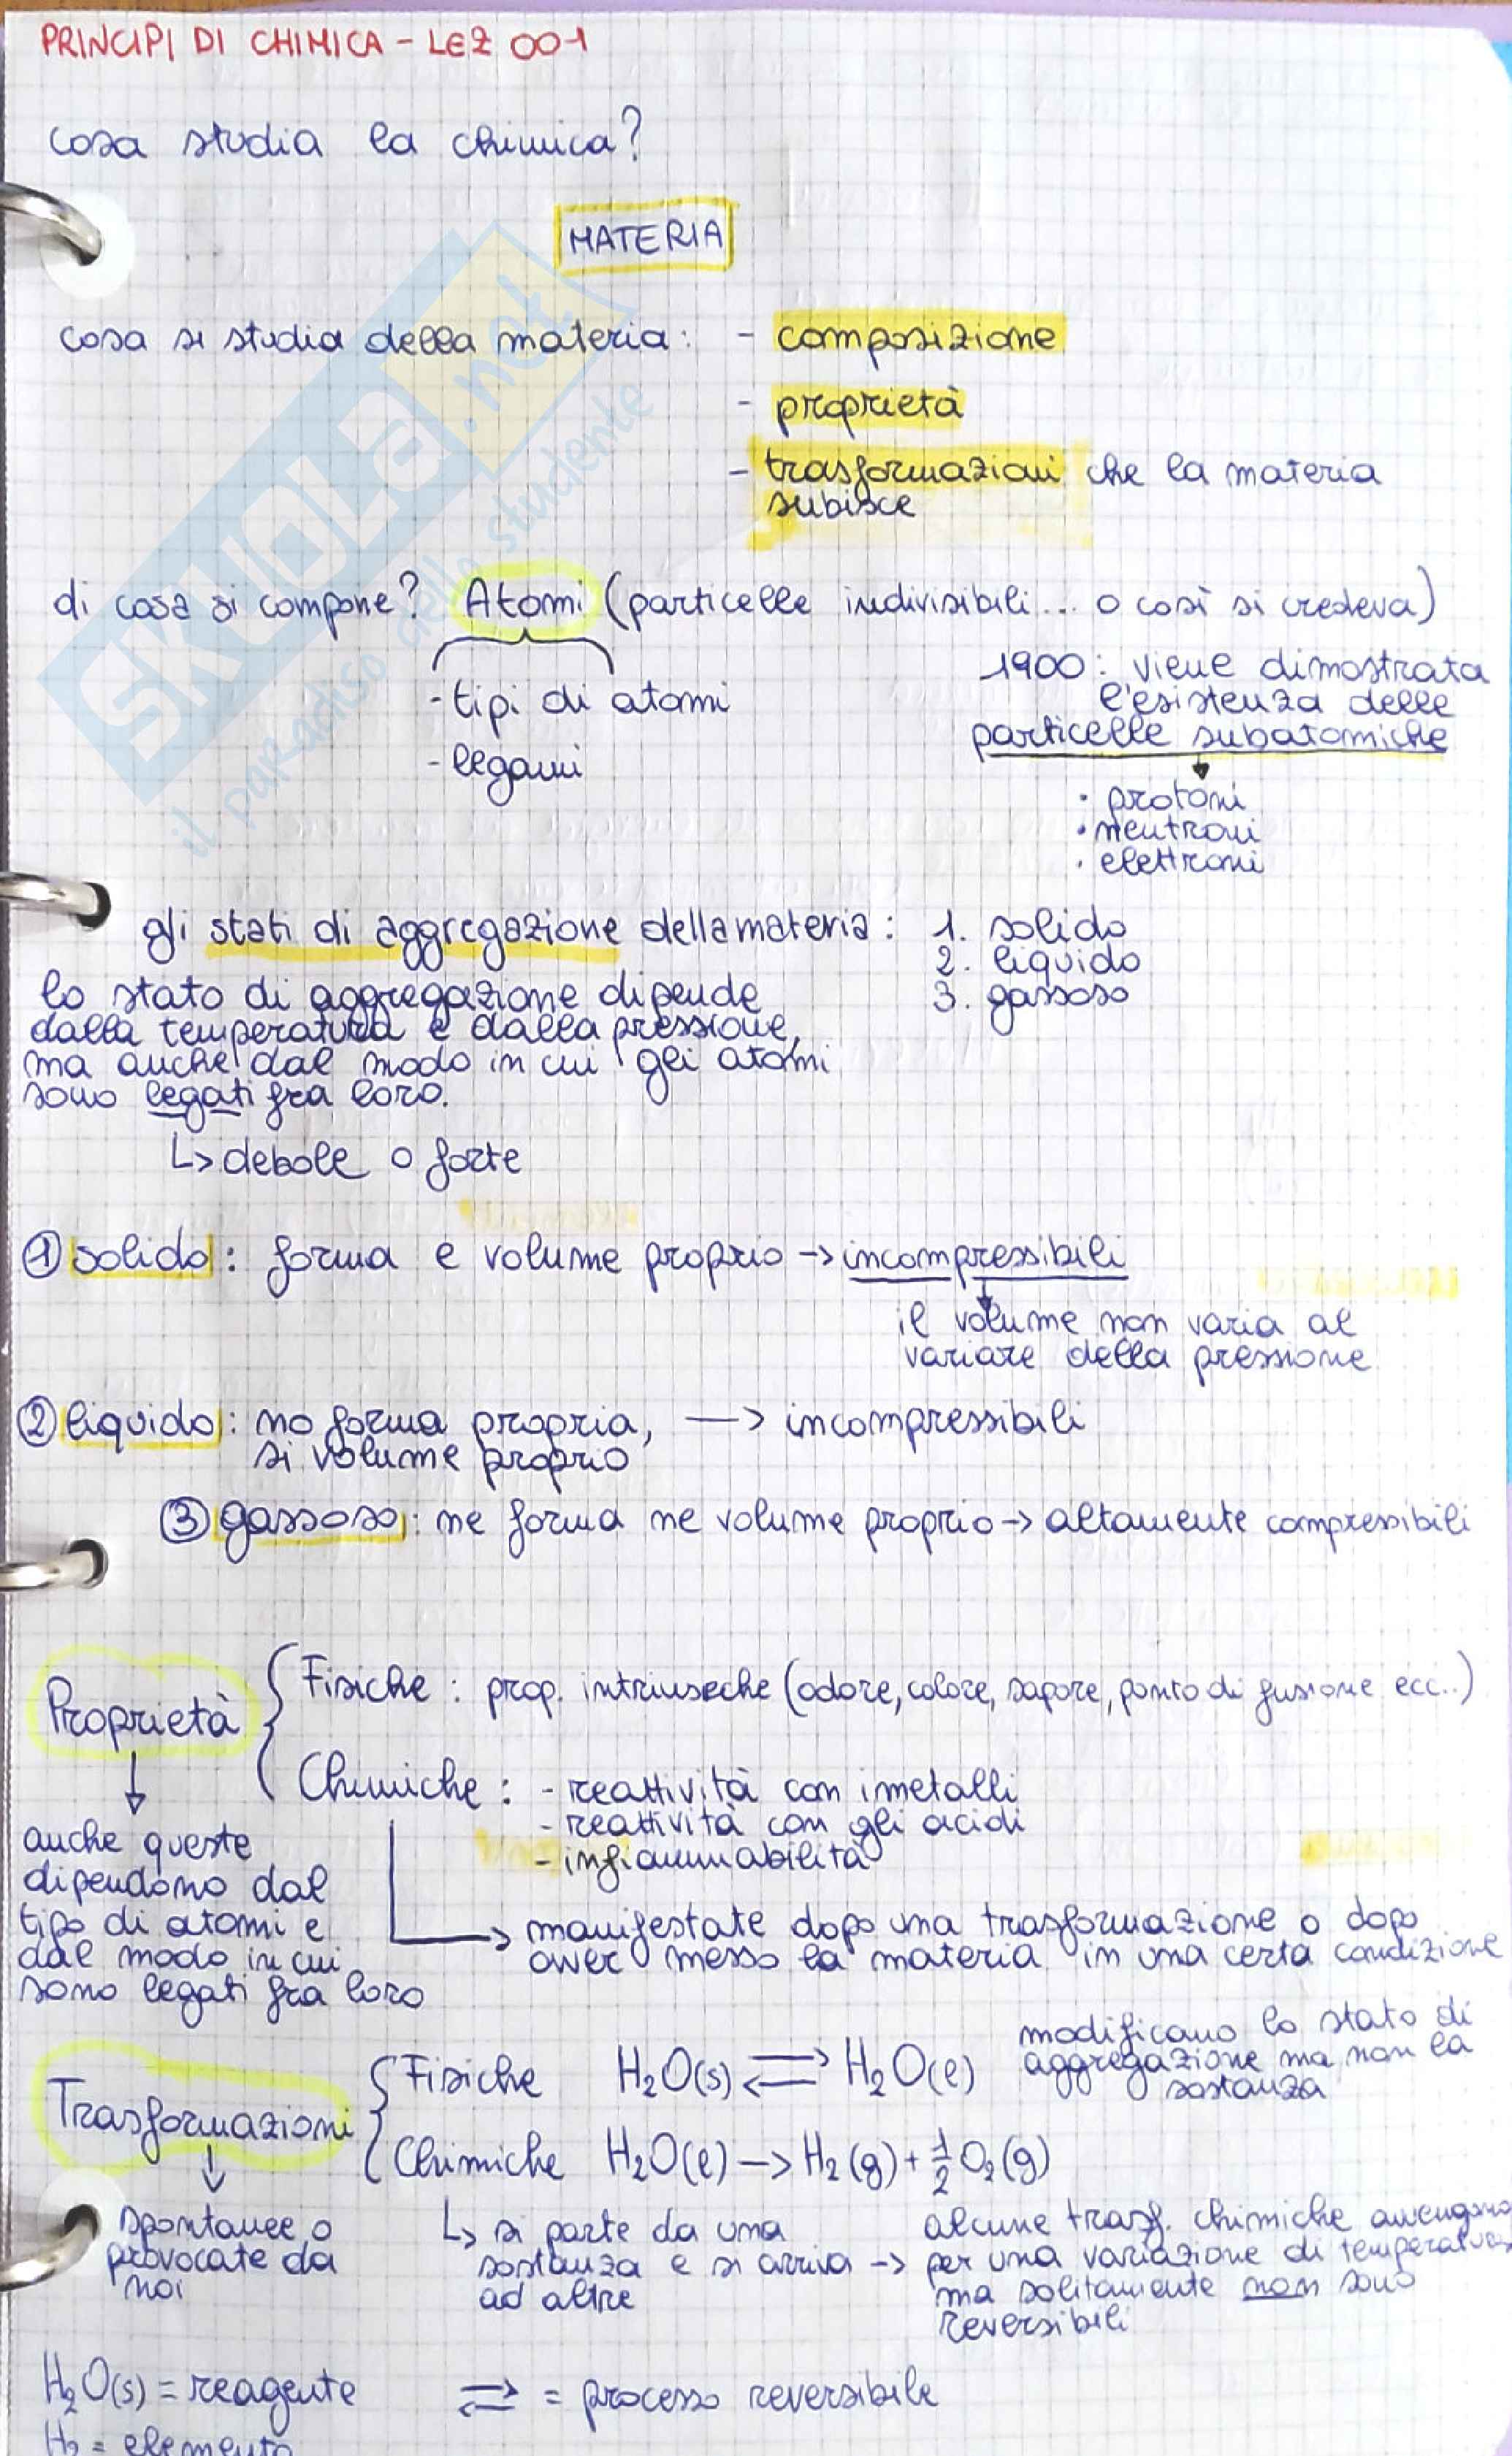 PRINCIPI DI CHIMICA - LEZ 001
cosa studia la chimica?
MATERIA
cosa si studia della materia: - composizione
- proprietà
- trasformazioni che la materia
subisce
di cosa si compone? Atomi (particelle indivisibili... o così si credeva)
- tipi di atomi
- legami
1900: viene dimostrata
l'esistenza delle
particelle subatomiche
· protoni
· neutroni
· elettroni
gli stati di aggregazione della materia: 1. solido
2. liquido
3. gassoso
lo stato di aggregazione dipende
dalla temperatura e dalla pressione,
ma anche dal modo in cui gli atomi
sono legati fra loro.
↳ debole o forte
① solido: forma e volume proprio → incompressibili
il volume non varia al
variare della pressione
② liquido: no forma propria, → incompressibili
si volume proprio
③ gassoso: ne forma ne volume proprio → altamente compressibili
Proprietà
Fisiche: prop. intrinseche (odore, colore, sapore, punto di fusione ecc..)
Chimiche: - reattività con i metalli
- reattività con gli acidi
- infiammabilità
→ manifestate dopo una trasformazione o dopo
aver messo la materia in una certa condizione
anche queste
dipendono dal
tipo di atomi e
dal modo in cui
sono legati fra loro
Trasformazioni
Fisiche H₂O(s) ⇄ H₂O(l)
modificano lo stato di
aggregazione ma non la
sostanza
Chimiche H₂O(l) → H₂(g) + ½ O₂(g)
↓
spontanee o
provocate da
noi
↳ si parte da una
sostanza e si arriva →
ad altre
alcune trasf. chimiche avvengono
per una variazione di temperatura,
ma solitamente non sono
reversibili
H₂O(s) = reagente ⇄ = processo reversibile
H₂ = elemento
SKUOLA.net
il paradiso dello studente